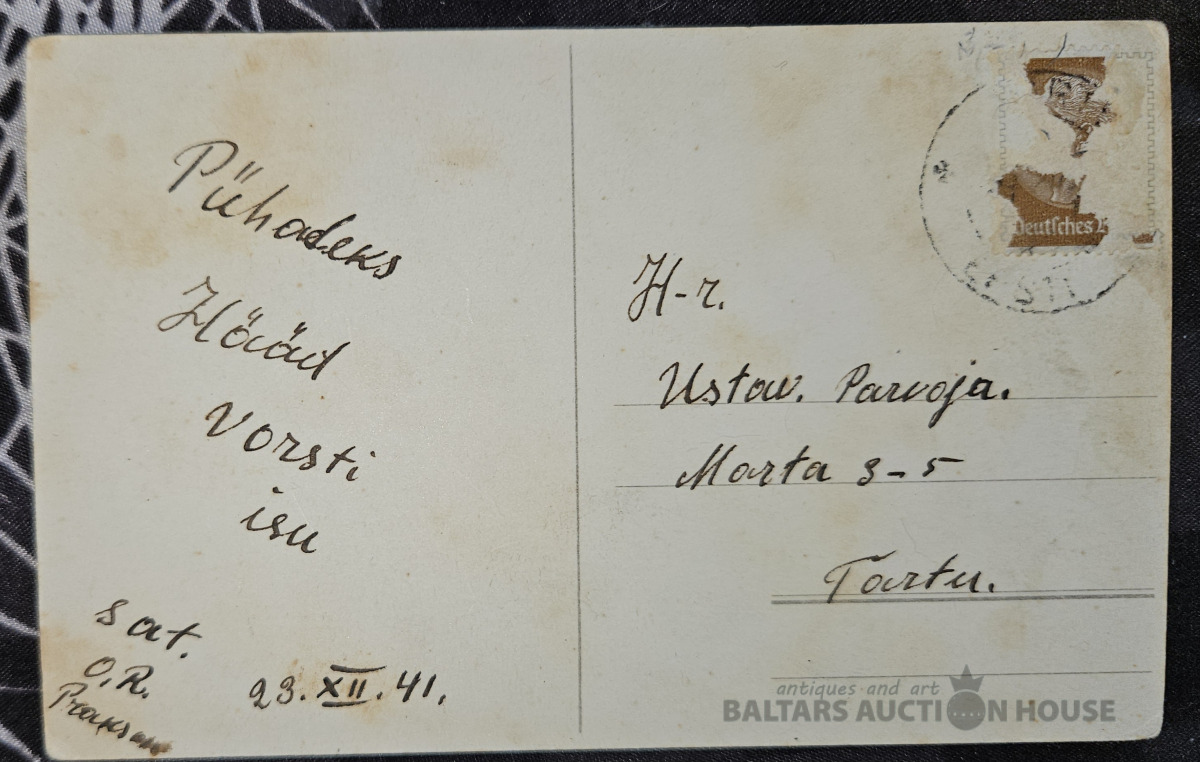 Pühadeks
Hääd
Vorsti
isu
sat.
O.R.
23.XII.41.
Deutsches
EESTI
H-r.
Ustav. Parvoja.
Marta 3-5
Tartu.
antiques and art
BALTARS AUCTION HOUSE